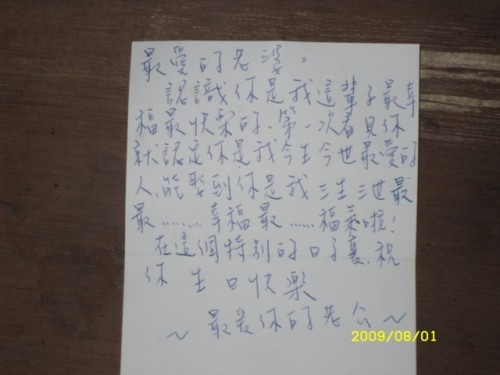 最愛的老婆。
認識你是我這輩子最幸
福最快樂的.第一次看見你
就認定你是我今生今世最愛的
人,能娶到你是我三生三世最
最........幸福最......福氣啦!
在這個特別的日子裏.祝
你生日快樂
~最最你的老公~
2009/08/01